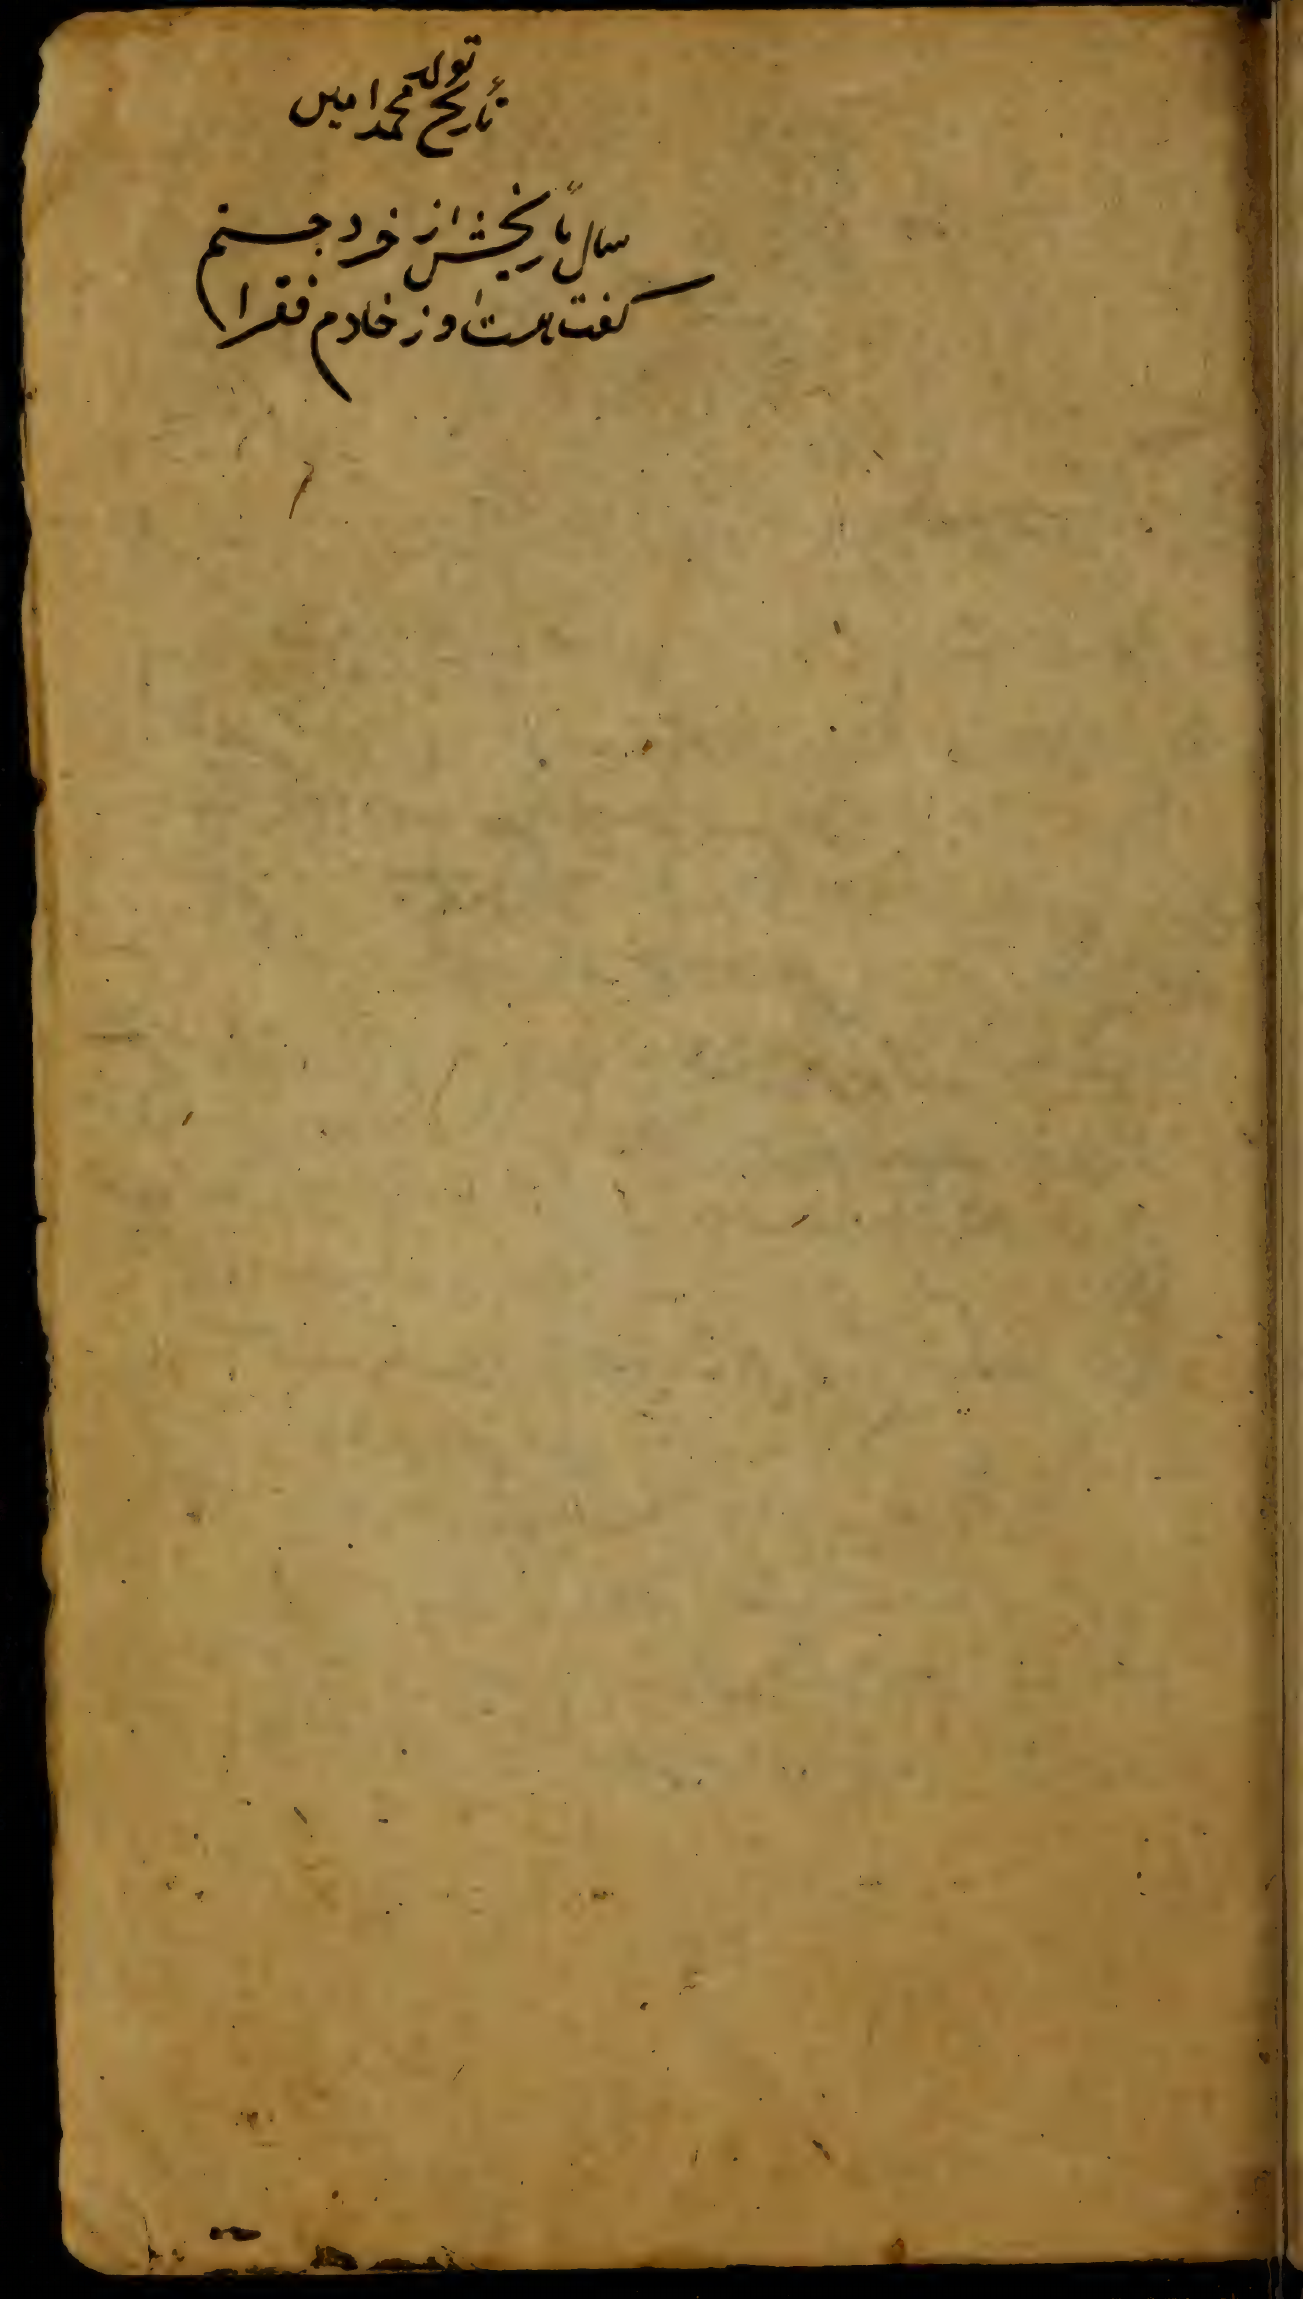 تاریخ تولد محمد امین
سال تاریخش از خرد جستم
کفت هست او ز خادم فقرا